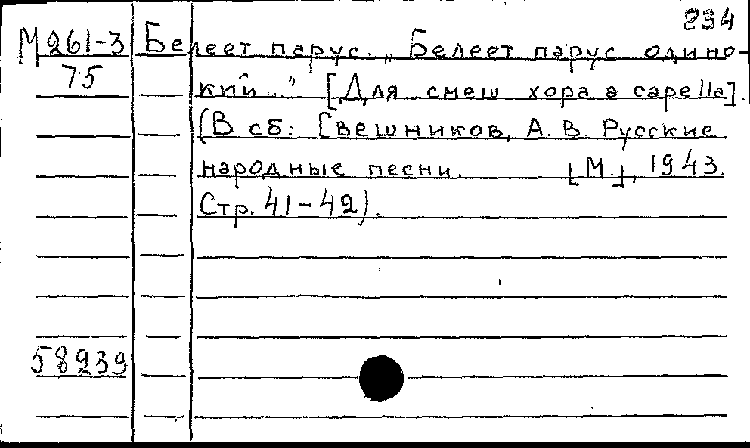 234
М 261-3 Белеет парус. „Белеет парус одино-
75 кий..." [Для смеш хора a capella].
(В сб: Свешников, А. В. Русские
народные песни. [М], 1943.
Стр. 41-42).
58939